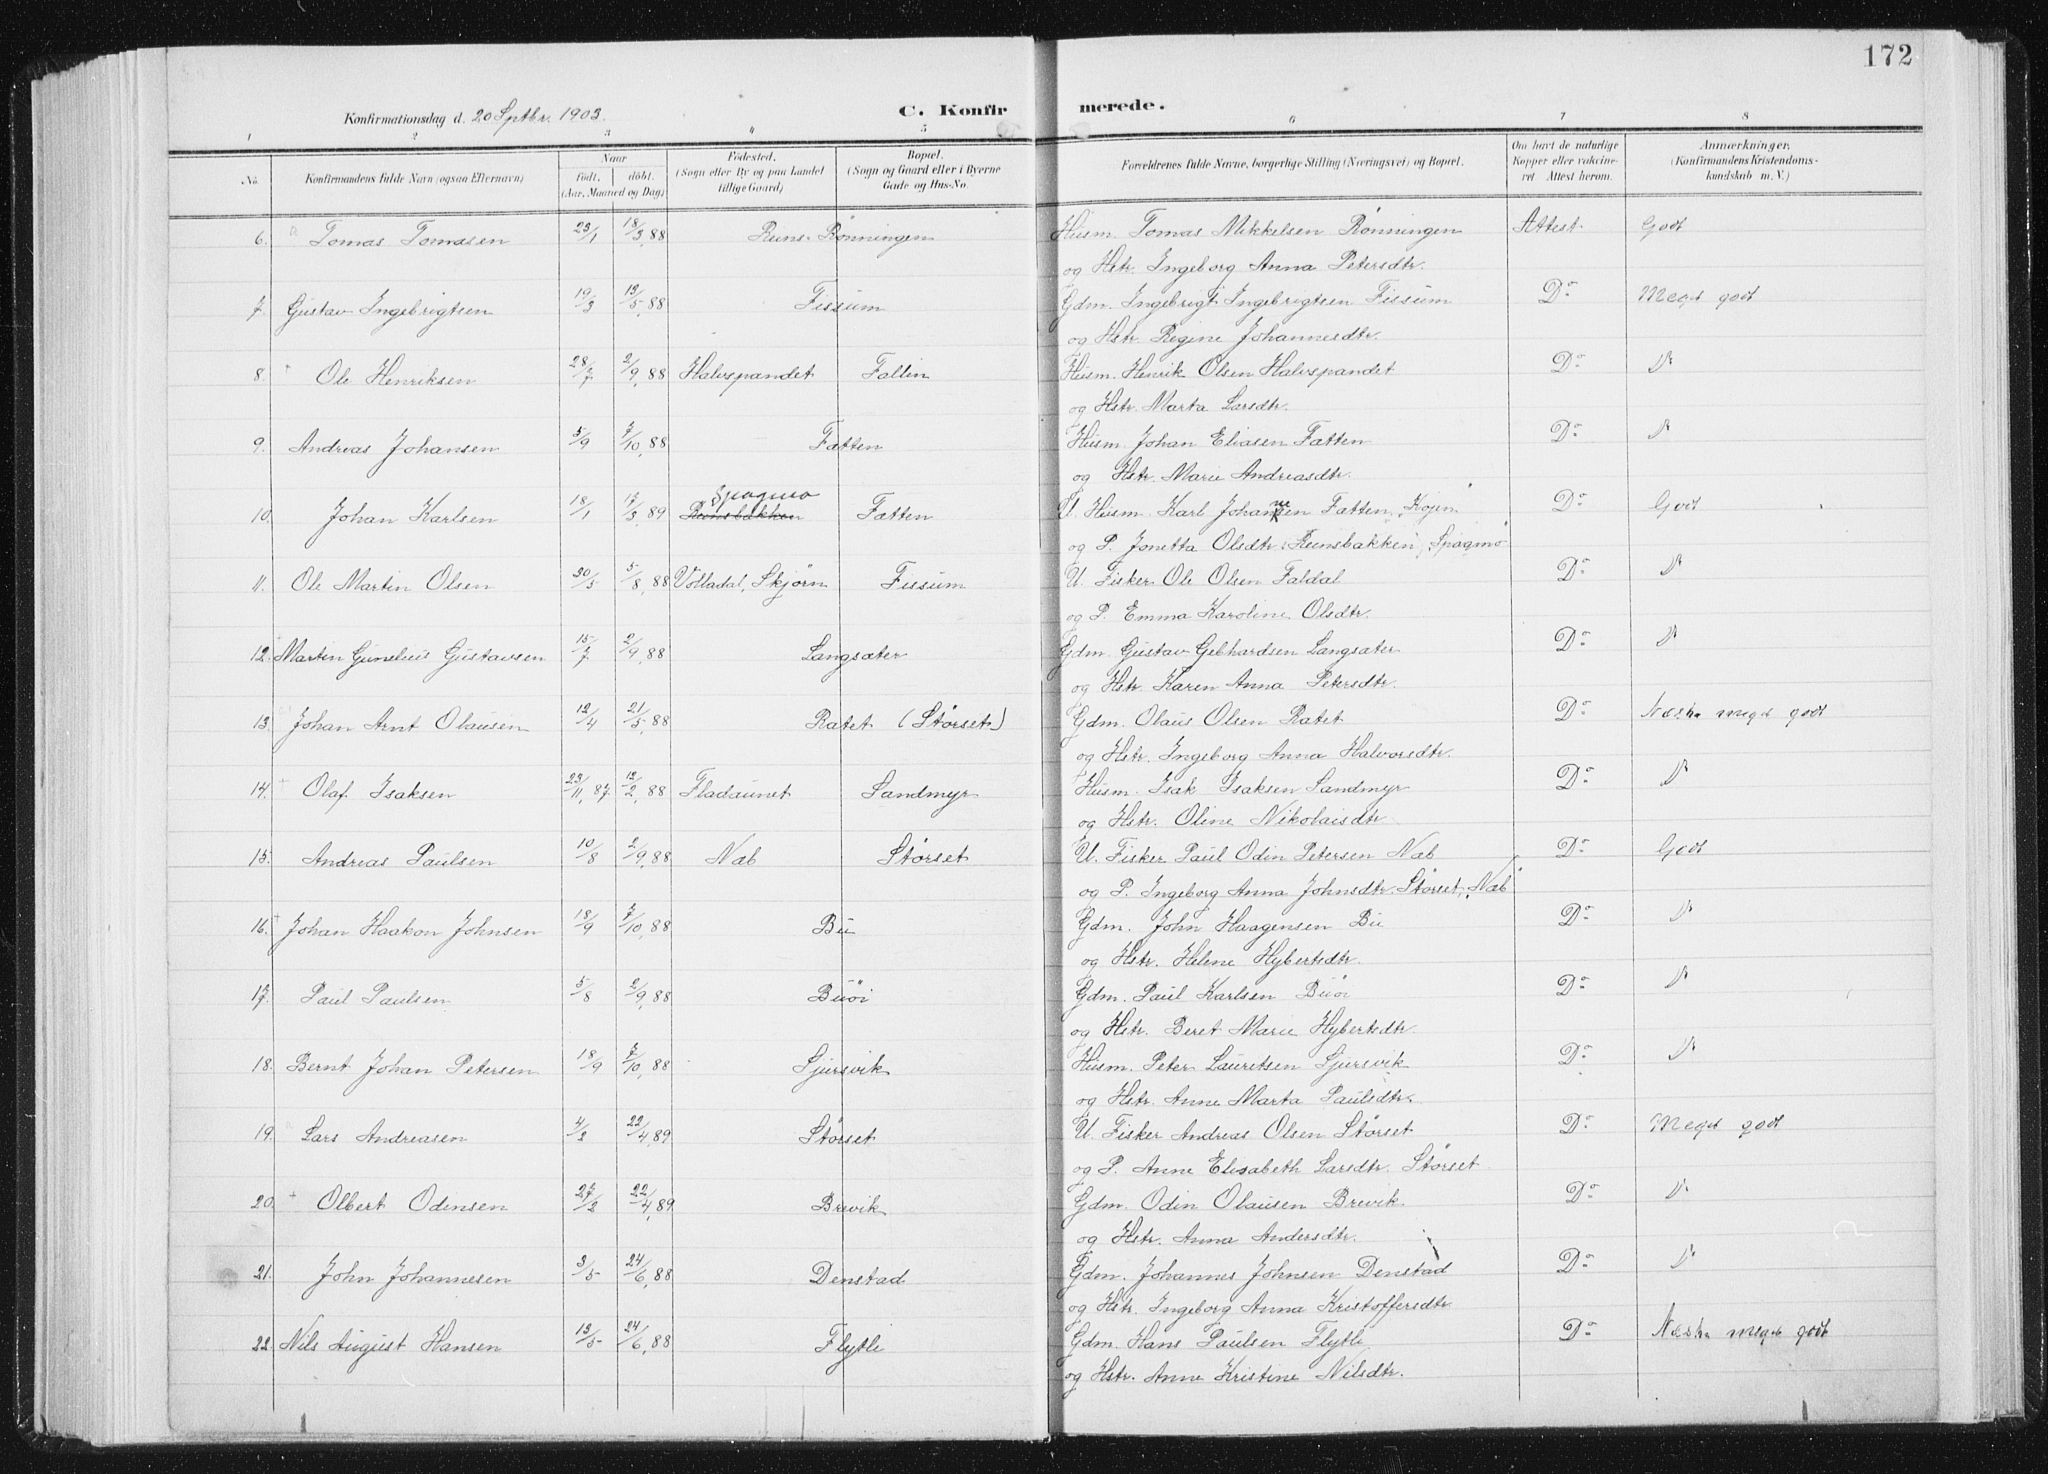 172
Konfirmationsdag d. 20 Septbr. 1903. C. Konfirmerede.
1 2 3 4 5 6 7 8
No. Konfirmandens fulde Navn (ogsaa Efternavn) Naar født. døbt. (Aar, Maaned og Dag) Fødested. (Sogn eller By og paa Landet tillige Gaard) Bopæl. (Sogn og Gaard eller i Byerne Gade og Hus-No. Forældrenes fulde Navne, borgerlige Stilling (Næringsvei) og Bopæl. Om havt de naturlige Kopper eller vaccineret. Attest herom. Anmærkninger. (Konfirmandens Kristendomskundskab m. V.)
6. Tomas Tomasen 23/1 18/3, 88 Reins-Rønningen Husm. Tomas Mikkelsen Rønningen Attest Godt
og Hstr. Ingeborg Anna Petersdtr.
7. Gustav Ingebrigtsen 19/3 13/5, 88 Fissum Gdm. Ingebrigt Ingebrigtsen Fissum Do Meget godt
og Hstr. Regine Johannesdtr.
8. Ole Henriksen 28/7 2/9, 88 Halvspandet Fallin Husm. Henrik Olsen Halvspandet Do
og Hstr. Marta Larsdtr.
9. Andreas Johansen 5/9 7/10, 88 Fatten Husm. Johan Eliasen Fatten Do
og Hstr. Marie Andreasdtr.
10. Johan Karlsen 18/1 17/3, 89 Reinsbakken Spagmo Fatten U. Husm. Karl Johannesen Fatten, Kojen Do Godt
og P. Jonetta Olsdtr. Reinsbakken, Spagmo
11. Ole Martin Olsen 30/5 5/8, 88 Votladal, Skjørn Fissum U. Fisker Ole Olsen Faldal Do
og P. Emma Karoline Olsdtr.
12. Martin Gunelius Gustavsen 15/7 2/9, 88 Langsæter Gdm. Gustav Gebhardsen Langsæter Do
og Hstr. Karen Anna Petersdtr.
13. Johan Arnt Olausen 12/4 21/5, 88 Ratet (Størset) Gdm. Olaus Olsen Ratet Do Næsten meget godt
og Hstr. Ingeborg Anna Halvorsdtr.
14. Olaf Isaksen 23/11, 87 12/2, 88 Fladaunet Sandmyr Husm. Isak Isaksen Sandmyr Do
og Hstr. Oline Nikolaisdtr.
15. Andreas Paulsen 10/8 2/9, 88 Nab Størset U. Fisker Paul Odin Petersen Nab Do Godt
og P. Ingeborg Anna Johnsdtr. Størset, "Nab"
16. Johan Haakon Johnsen 18/9 7/10, 88 Bu Gdm. John Haagensen Bu Do
og Hstr. Helene Hybertsdtr.
17. Paul Paulsen 5/8 2/9, 88 Buöi Gdm. Paul Karlsen Buöi Do
og Hstr. Beret Marie Hybertsdtr.
18. Bernt Johan Petersen 18/9 7/10, 88 Sjursvik Husm. Peter Lauritsen Sjursvik Do
og Hstr. Anne Marta Paulsdtr.
19. Lars Andreasen 4/2 22/4, 89 Størset U. Fisker Andreas Olsen Størset Do Meget godt
og P. Anne Elisabeth Larsdtr. Størset
20. Olbert Odinsen 27/2 22/4, 89 Brevik Gdm. Odin Olausen Brevik Do
og Hstr. Anna Andersdtr.
21. John Johannesen 3/5 24/6, 88 Denstad Gdm. Johannes Johnsen Denstad Do
og Hstr. Ingeborg Anna Kristoffersdtr.
22. Nils August Hansen 13/5 24/6, 88 Flytli Gdm. Hans Paulsen Flytli Do Næsten meget godt
og Hstr. Anne Kristine Nilsdtr.